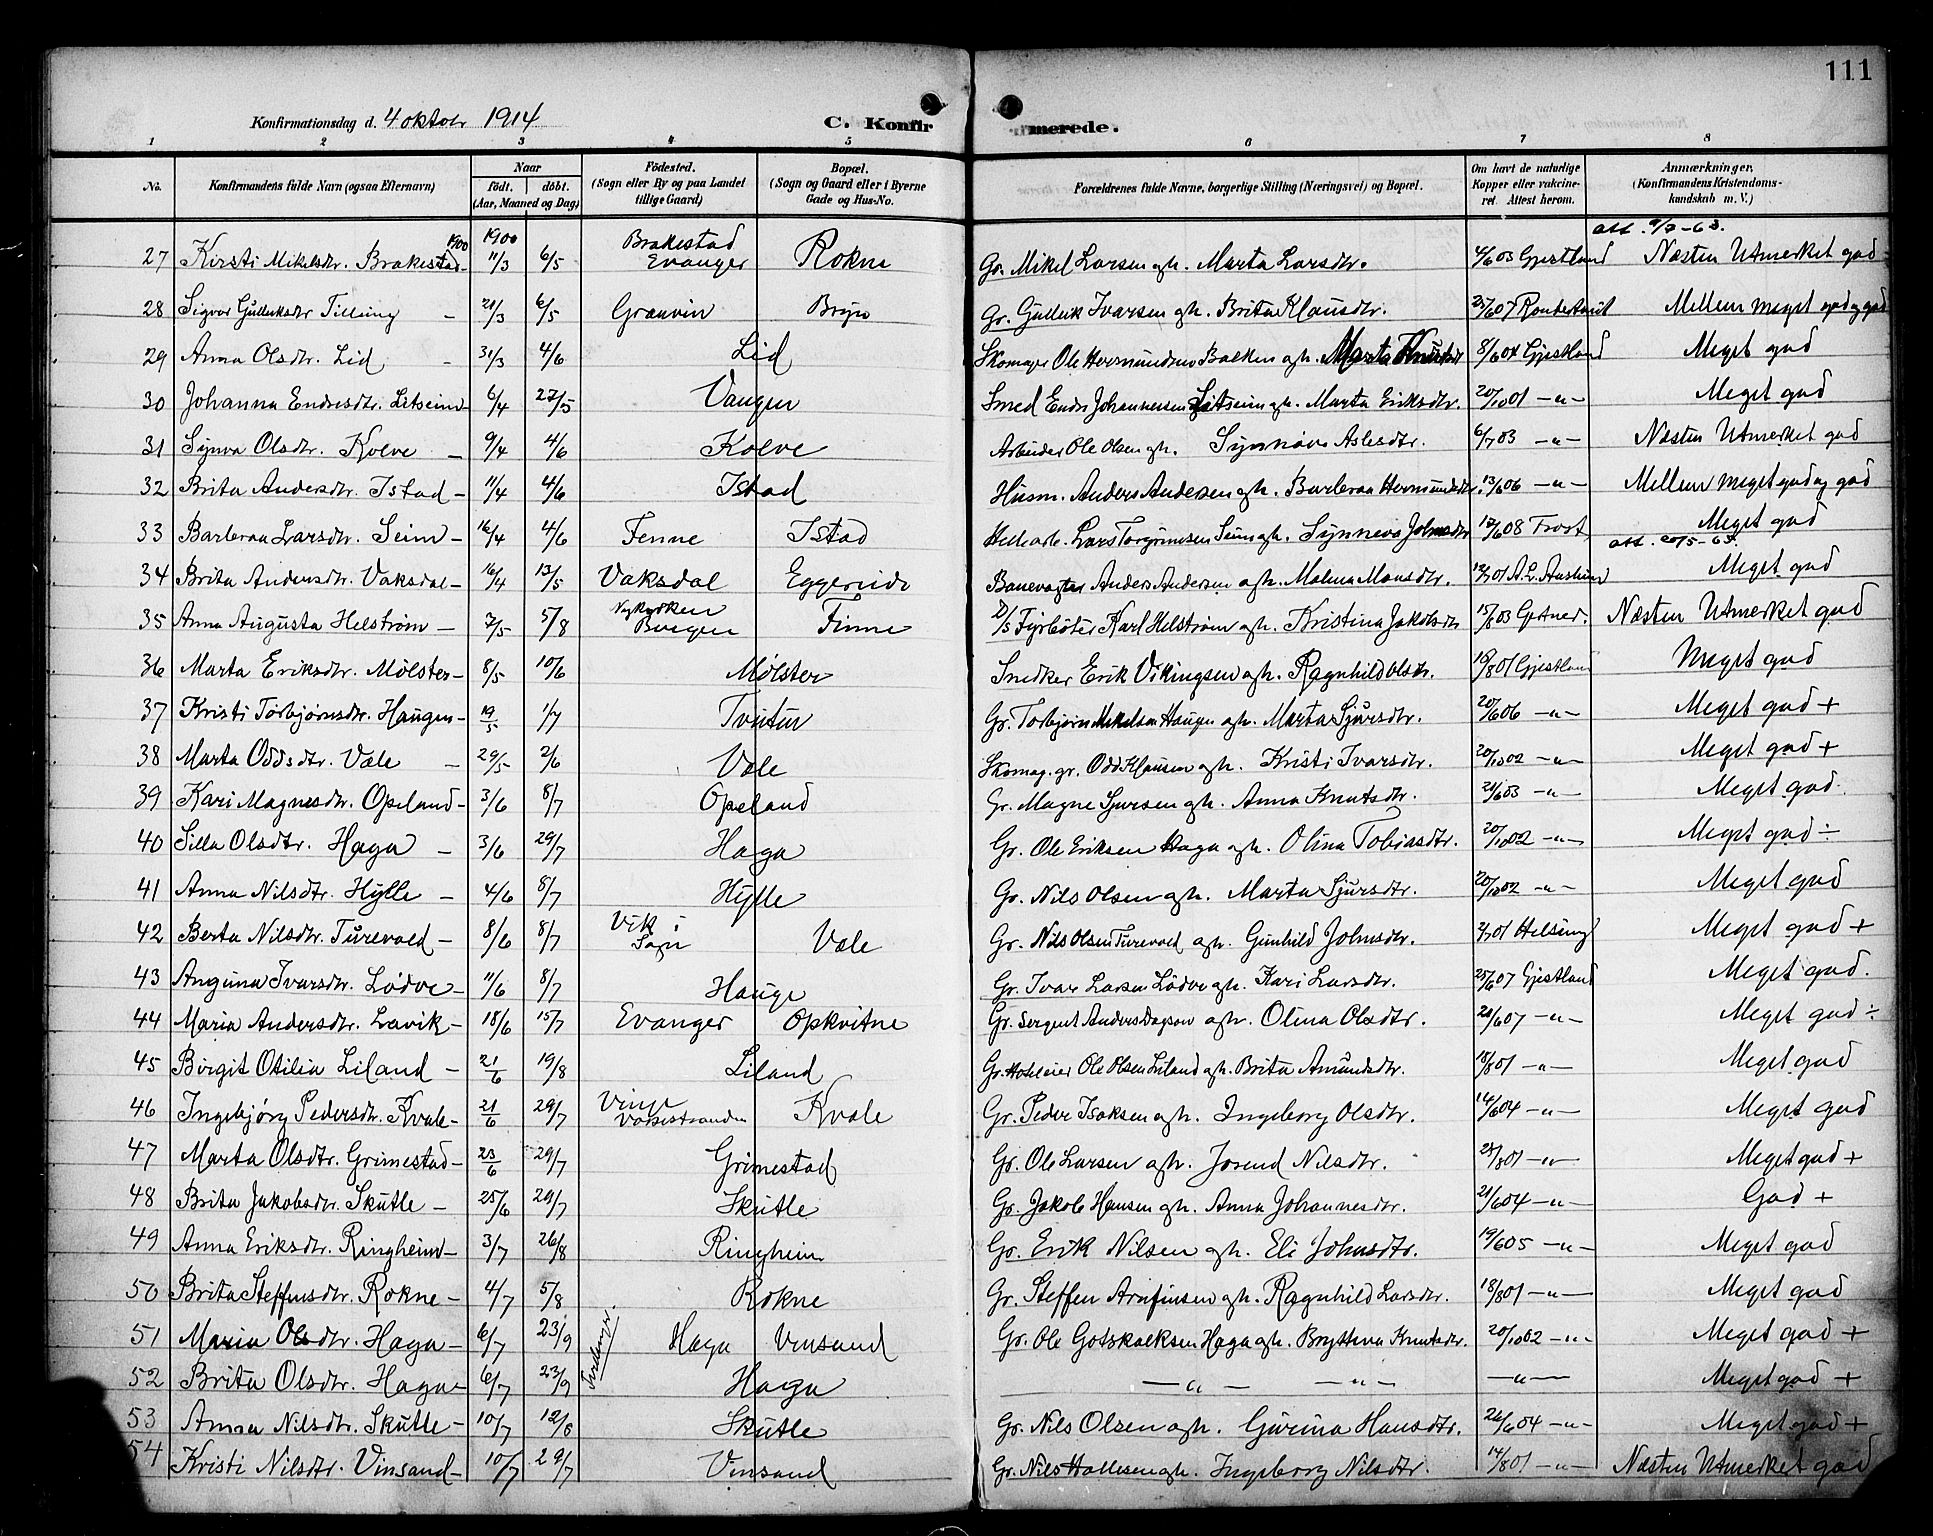 111
Konfirmationsdag d. 4 oktobr 1914
C. Konfirmerede.
1 2 3 4 5 6 7 8
No. Konfirmandens fulde Navn (ogsaa Efternavn) Naar født. døbt. (Aar, Maaned og Dag) Födested. (Sogn eller By og paa Landet tillige Gaard) Bopæl. (Sogn og Gaard eller i Byerne Gade og Hus-No. Forældrenes fulde Navne, borgerlige Stilling (Næringsvei) og Bopæl. Om havt de naturlige Kopper eller vakcineret. Attest herom. Anmærkninger. (Konfirmandens Kristendomskundskab m. V.)
27 Kirsti Mikelsdtr. Brakestad 1900 11/3 6/5 Brakestad Evanger Rokne Gr. Mikel Larsen ogh. Marta Larsdtr. 4/6 03 Gjestland Næsten Utmerket god
28 Sigvor Gulleiksdtr Tillung – 21/3 6/5 Granvin Bryn Gr. Gulleik Ivarsen ogh. Brita Klausdtr. 25/6 07 Mellem meget god og god
29 Anna Olsdtr. Lid – 31/3 4/6 Lid Skomager Ole Hermundsen Balken ogh. Marta Knutsdt 8/6 04 Gjestland Meget god
30 Johanna Endresdtr. Litseim – 6/4 27/5 Vangen Smed Endre Johannessen Litseim ogh. Marta Eriksdtr. 20/10 01 –"– Meget god
31 Synva Olsdtr. Kolve – 9/4 4/6 Kolve Arbeider Ole Olsen ogh. Synnøve Aslesdtr. 6/7 03 –"– Næsten Utmerket god
32 Brita Andersdtr. Istad – 11/4 4/6 Istad Husm. Anders Andersen ogh. Barbraa Hermundsdtr. 13/6 06 –"– Mellem meget god og god
33 Barbraa Larsdtr. Seim – 16/4 4/6 Fenne Istad Lars Torgrimsen Seim ogh. Synneva Johnsdtr 12/6 08 Trost Meget god
34 Brita Andersdtr. Vaksdal – 16/4 13/5 Vaksdal Eggereide Banevogter Anders Andersen ogh. Malena Monsdtr. 12/7 01 Meget god
35 Anna Augusta Helstrøm – 7/5 5/8 Nykirken Bergen Finne Fyrbøter Karl Helstrøm ogh. Kristina Jakobsdtr 15/8 03 Næsten Utmerket god
36 Marta Eriksdtr. Mølster – 8/5 10/6 Mølster Snedker Erik Vikingsen ogh. Ragnhild Olsdtr. 18/8 01 Gjestland Meget god
37 Kristi Torbjørnsdtr. Haugen – 19/5 1/7 Tvitun Gr. Torbjørn Mikelsen Haugen ogh. Marta Sjursdtr. 20/6 06 –"– Meget god +
38 Marta Oddsdtr. Væle – 29/5 2/6 Væle Skomag. gr. Odd Klausen ogh. Kristi Ivarsdtr. 20/10 02 –"– Meget god +
39 Kari Magnesdtr. Opeland – 3/6 8/7 Opeland Gr. Magne Sjursen ogh. Anna Knutsdtr. 21/6 03 –"– Meget god.
40 Silla Olsdtr. Haga – 3/6 29/7 Haga Gr. Ole Eriksen Haga ogh. Olina Tobiasdtr. 20/10 02 –"– Meget god ÷
41 Anna Nilsdtr. Hylle – 4/6 8/7 Hylle Gr. Nils Olsen ogh. Marta Sjursdtr. 20/10 02 –"– Meget god
42 Berta Nilsdtr. Turevold – 8/6 8/7 Vik i Sogn Væle Gr. Nils Olsen Turevold ogh. Gunhild Johnsdtr. 2/7 01 Helsing Meget god +
43 Anguna Ivarsdtr. Lødve – 11/6 8/7 Hauge Gr. Ivar Larsen Lødve ogh. Kari Larsdtr. 25/6 07 Gjestland Meget god.
44 Maria Andersdtr. Lavik – 18/6 15/7 Evanger Opkvitne Gr. Sergent Anders Dagson ogh. Olina Olsdtr. 28/6 07 –"– Meget god ÷
45 Birgit Otilia Liland – 21/6 19/8 Liland Gr. Hoteleier Ole Olsen Liland ogh. Brita Amundsdtr. 18/8 01 –"– Meget god
46 Ingebjørg Pedersdtr. Kvale – 21/6 29/7 Vinje Vossestranden Kvale Gr. Peder Isaksen ogh. Ingeborg Olsdtr. 14/6 04 –"– Meget god
47 Marta Olsdtr. Grimestad – 23/6 29/7 Grimestad Gr. Ole Larsen ogh. Josend Nilsdtr. 25/8 01 –"– Meget god +
48 Brita Jakobsdtr. Skutle – 25/6 29/7 Skutle Gr. Jakob Hansen ogh. Anna Johannesdtr. 21/6 04 –"– God +
49 Anna Eriksdtr. Ringheim – 3/7 26/8 Ringheim Gr. Erik Nilsen ogh. Eli Johnsdtr. 19/6 05 –"– Meget god
50 Brita Steffensdtr. Rokne – 4/7 5/8 Rokne Gr. Steffen Arnfinsen ogh. Ragnhild Larsdtr. 18/8 01 –"– Meget god
51 Maria Olsdtr. Haga – 6/7 23/9 Haga Vinsand Gr. Ole Gotskalksen Haga ogh. Brytteva Knutsdtr. 20/10 02 –"– Meget god +
52 Brita Olsdtr. Haga – 6/7 23/9 Haga –"– –"– –"– Meget god +
53 Anna Nilsdtr. Skutle – 10/7 12/8 Skutle Gr. Nils Olsen ogh. Gurina Hansdtr. 22/6 04 –"– Meget god +
54 Kristi Nilsdtr. Vinsand – 10/7 29/7 Vinsand Gr. Nils Hallesen ogh. Ingeborg Nilsdtr. 14/8 01 –"– Næsten Utmerket god